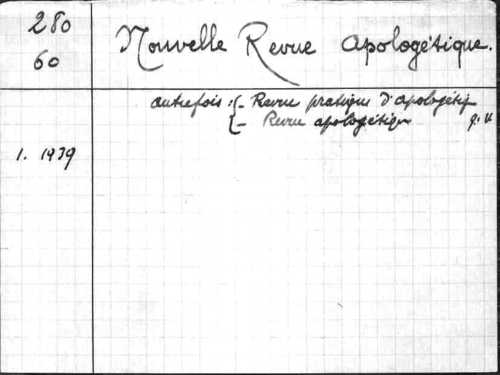 280
60
Nouvelle Revue Apologétique.
autrefois : {- Revue pratique d'apologétiq
{- Revue apologétique q.v
1. 1939